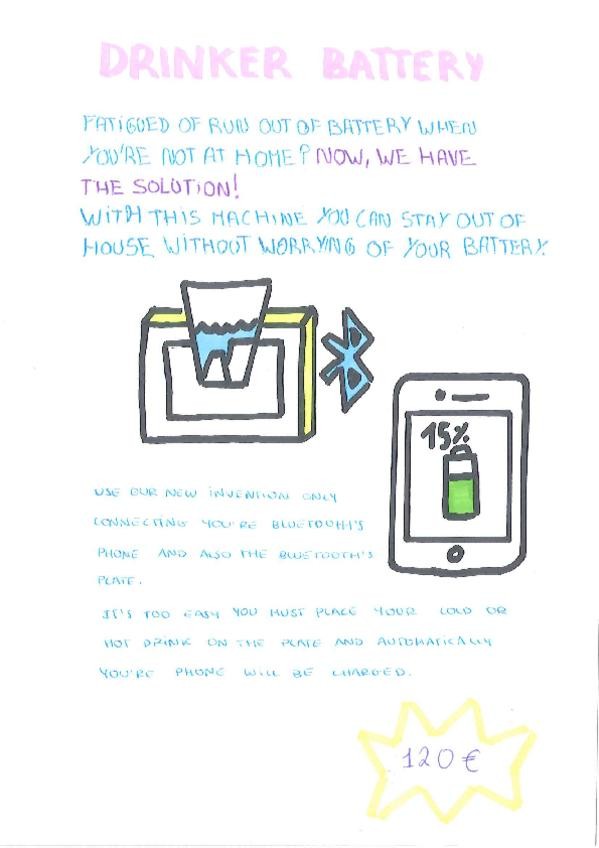 DRINKER BATTERY
FATIGUED OF RUN OUT OF BATTERY WHEN
YOU'RE NOT AT HOME? NOW, WE HAVE
THE SOLUTION!
WITH THIS MACHINE YOU CAN STAY OUT OF
HOUSE WITHOUT WORRYING OF YOUR BATTERY.
15%
USE OUR NEW INVENTION ONLY
CONNECTING YOU'RE BLUETOOTH'S
PHONE AND ALSO THE BLUETOOTH'S
PLATE.
IT'S TOO EASY YOU MUST PLACE YOUR COLD OR
HOT DRINK ON THE PLATE AND AUTOMATICALLY
YOU'RE PHONE WILL BE CHARGED.
120€